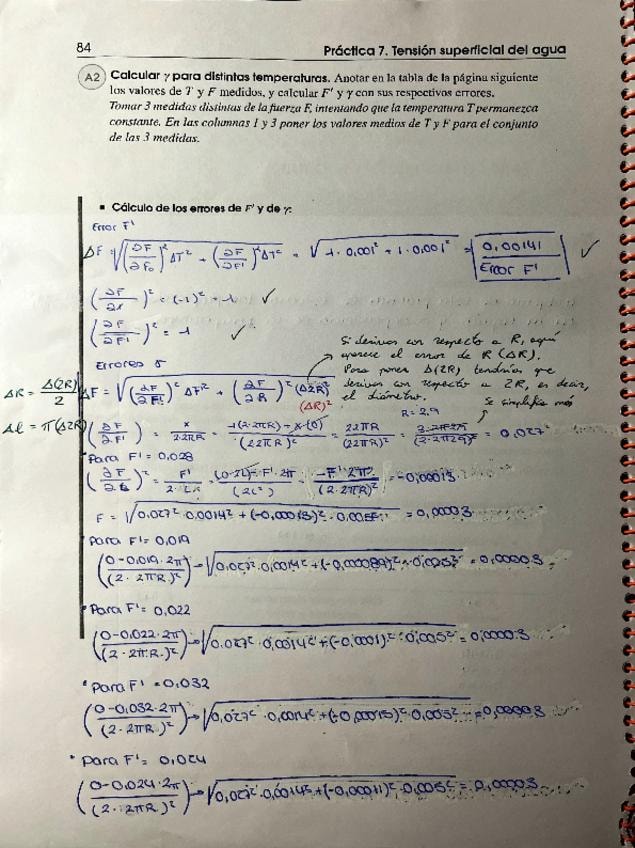 84
Práctica 7. Tensión superficial del agua
A2 Calcular γ para distintas temperaturas. Anotar en la tabla de la página siguiente
los valores de T y F medidos, y calcular F' y γ con sus respectivos errores.
Tomar 3 medidas distintas de la fuerza F, intentando que la temperatura T permanezca
constante. En las columnas 1 y 3 poner los valores medios de T y F para el conjunto
de las 3 medidas.
▪ Cálculo de los errores de F' y de γ:
Error F'
ΔF = √((∂F/∂F₀)² ΔT² + (∂F/∂F')² ΔT²) = √(1·0,001² + 1·0,001²) = 0,00141 Error F' ✓
(∂F/∂x)² = (-1)² = 1 ✓
(∂F/∂F')² = 1 ✓
Si derivas con respecto a R, aquí
aparece el error de R (ΔR).
Para poner Δ(2R) tendrías que
derivar con respecto a 2R, es decir,
el diámetro.
Se simplifica más
Errores γ
ΔR = Δ(2R)/2
ΔF = √((∂F/∂F')² ΔF² + (∂F/∂R)² (Δ2R)²)
(ΔR)²
R = 2,9
Δl = π(Δ2R)
(∂F/∂F') = x/2·2πR = = 22πR/(22πR)² = = 0,027²
Para F' = 0,028
= -0,00013
F = = 0,0003
Para F' = 0,019
(0-0,019·2π)/(2·2πR)² → = 0,00003
Para F' = 0,022
(0-0,022·2π)/(2·2πR)² → √(0,027²·0,0014² + (-0,0001)²·0,005²) = 0,00003
Para F' = 0,032
(0-0,032·2π)/(2·2πR)² → √(0,027²·0,0014² + (-0,00015)²·0,005²) = 0,00003
Para F' = 0,024
(0-0,024·2π)/(2·2πR)² → √(0,027²·0,0014² + (-0,00011)²·0,005²) = 0,00003